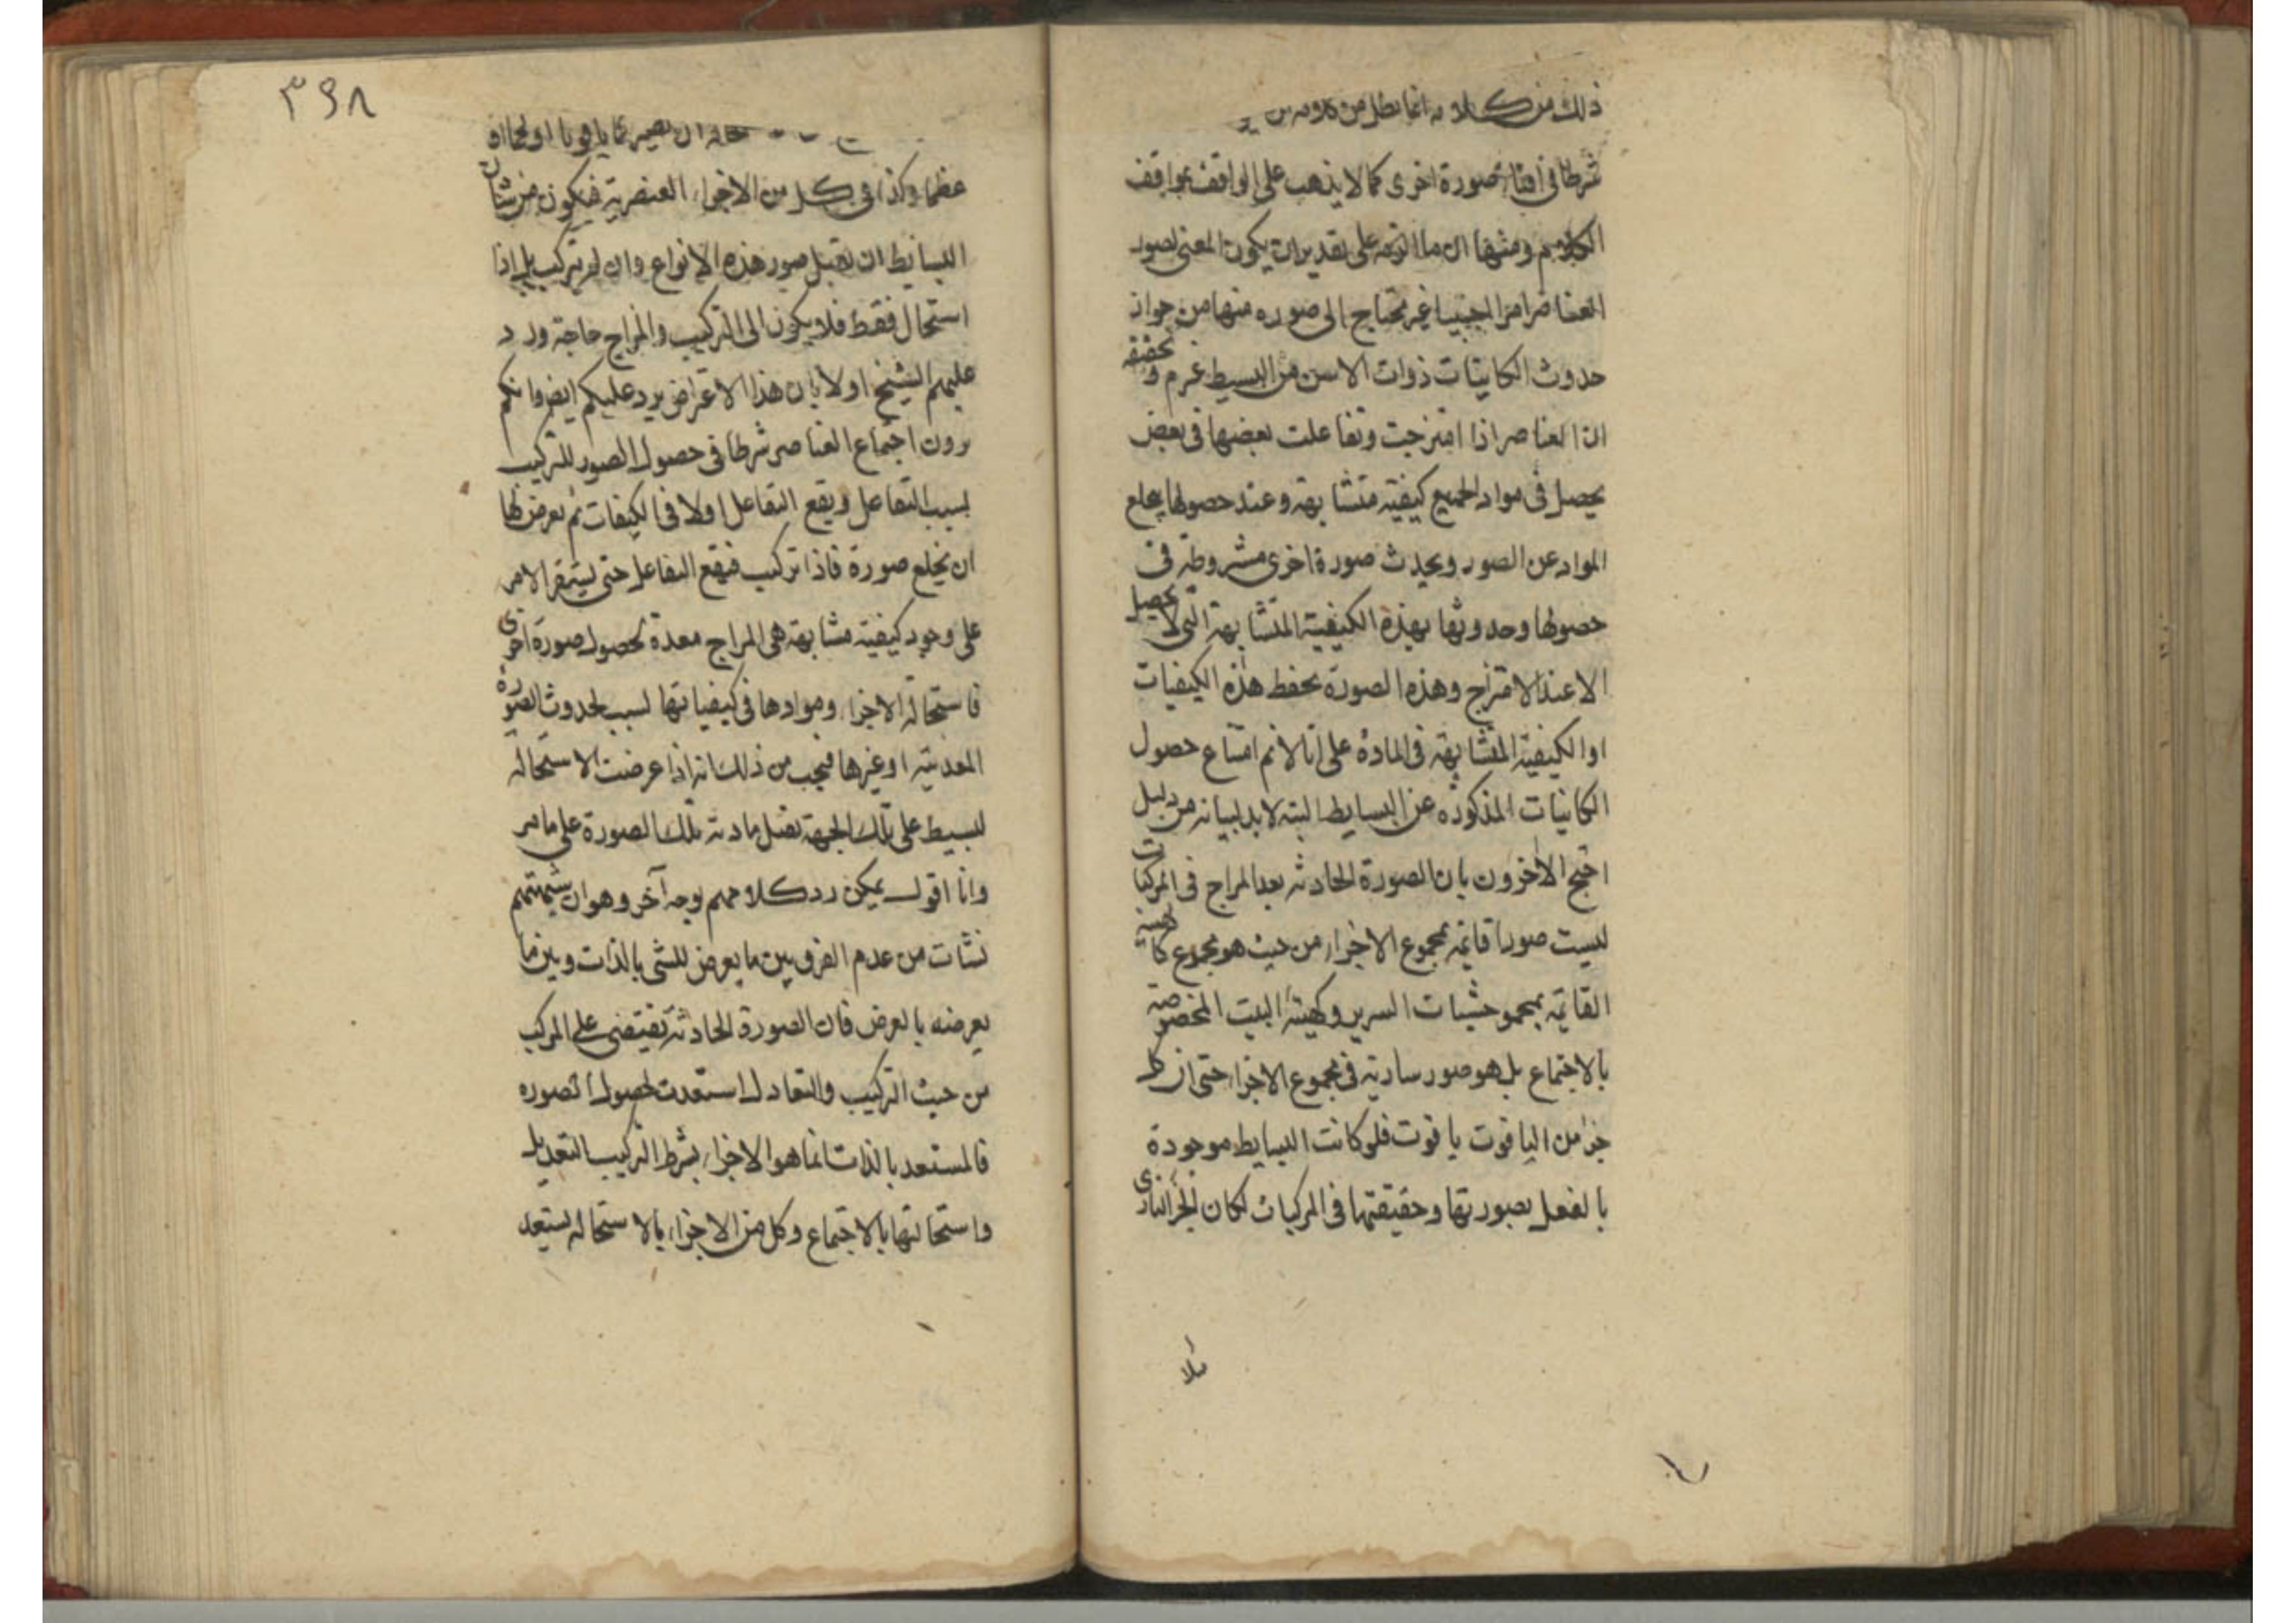 ذلك من كلامه انما يظل من كلامه من
شرطا في افنا صورة اخرى كما لا يذهب على الواقف بمواقف
الكلام ومنها ان ما الزمه على تقدير ان يكون المعنى لصور
العناصر امرا اجنبيا غير محتاج الى صوره منها من جواز
حدوث الكاينات ذوات الاسن من البسيط غرم و تحققه
ان العناصر اذا امتزجت وتفاعلت بعضها في بعض
يحصل في مواد الجميع كيفية متشابهة وعند حصولها يخلع
المواد عن الصور ويحدث صورة اخرى مشروطة في
حصولها وحدوثها بهذه الكيفية المتشابهة التي لا يحصل
الا عند الامتزاج وهذه الصورة تحفظ هذه الكيفيات
او الكيفية المتشابهة في المادة على انا لانم امتناع حصول
الكاينات المذكوره عن البسايط البته لا بد لبيانه من دليل
احتج الاخرون بان الصورة الحادثه بعد المزاج في المركبات
ليست صورا قايمة بمجموع الاجزاء من حيث هو مجموع كالهيئة
القايمة بمجموع خشبات السرير وكهيئة البيت المخصوصة
بالاجتماع بل هو صور سارية في مجموع الاجزاء حتى ان كل
جزء من الياقوت ياقوت فلو كانت البسايط موجودة
بالفعل بصورتها وحقيقتها في المركبات لكان الجزء الناري
مثلا
٣٩٨
حاله ان يصير ياقوتا او لحما او
عظما وكذا في كل من الاجزاء العنصرية فيكون من شان
البسايط ان تقبل صور هذه الانواع وان لم يتركب بل اذا
استحال فقط فلا يكون الى التركيب والمزاج حاجة ورد
عليهم الشيخ اولا بان هذا الاعتراض يرد عليكم ايض وانكم
ترون اجتماع العناصر شرطا في حصول الصور للتركيب
بسبب التفاعل ويقع التفاعل اولا في الكيفات ثم يعرض لها
ان يخلع صورة فاذا تركيب فيقع التفاعل حتى يستقر الامر
على وجود كيفية متشابهة هي المزاج معدة لحصول صورة اخرى
فاستحالة الاجزاء وموادها في كيفياتها لسبب لحدوث الصورة
المعدنية او غيرها فيجب من ذلك انه اذا عرضت الاستحاله
لبسيط على تلك الجهة تقبل مادته تلك الصورة على ما مر
وانا اقول يمكن رد كلامهم بوجه آخر وهو ان شبهتهم
نشات من عدم الفرق بين ما يعرض للشي بالذات وبين ما
يعرضه بالعرض فان الصورة الحادثة تقتضى على المركب
من حيث التركيب والتعادل استعدت لحصول الصوره
فالمستعد بالذات انما هو الاجزاء بشرط التركيب التعديل
واستحالتها بالاجتماع وكل من الاجزاء بالاستحاله يستعد